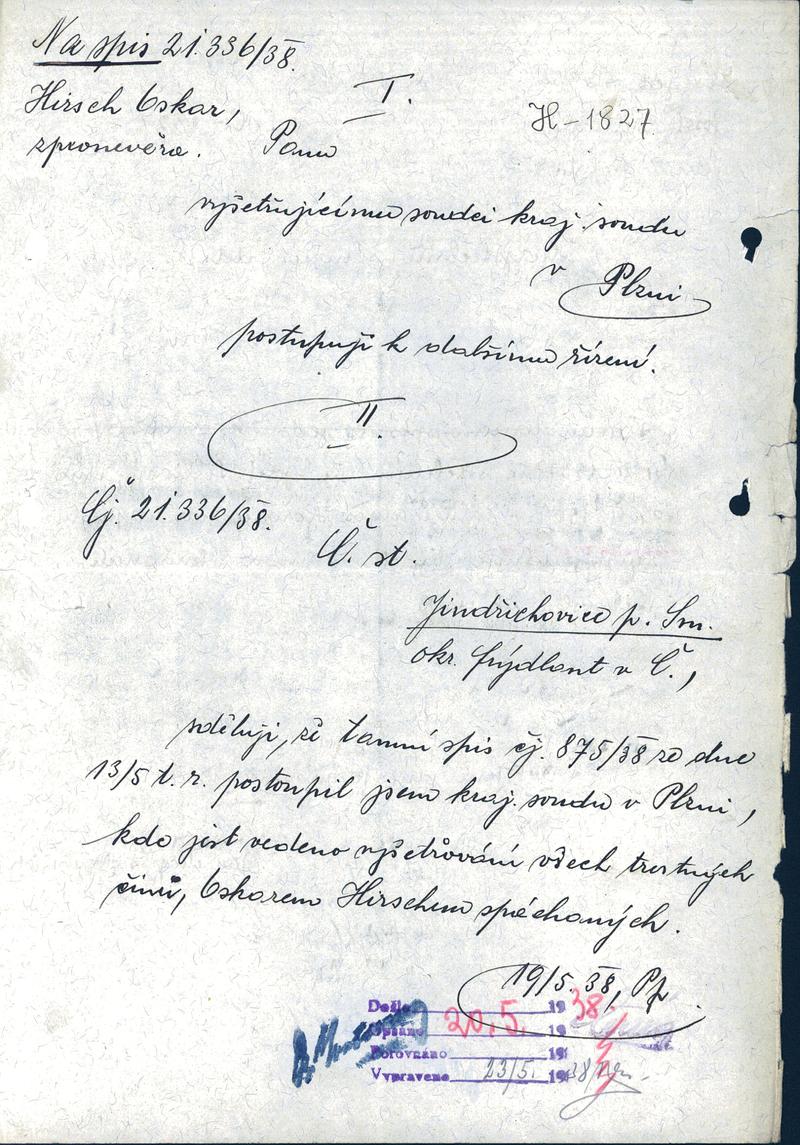 Na spis 21.336/38.
I.
Hirsch Oskar,
H-1827
zpronevěra. Panu
vyšetřujícímu soudci kraj. soudu
v Plzni
postupuji k dalšímu řízení.
II.
Čj. 21.336/38.
Č. st.
Jindřichovice p. Sm.
okr. Frýdlant v Č.,
sděluji, že tamní spis čj. 875/38 ze dne
13/5 t. r. postoupil jsem kraj. soudu v Plzni,
kde jest vedeno vyšetřování všech trestných
činů, Oskarem Hirschem spáchaných.
19/5. 38,
Došlo 20.5. 1938.
Opsáno 19
Porovnáno 19
Vypraveno 23/5. 1938